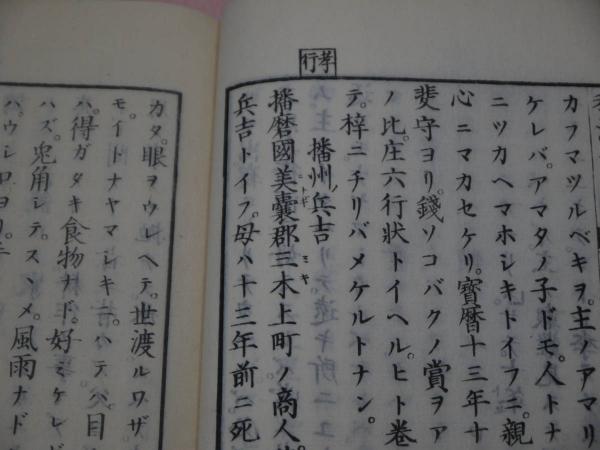 孝行
カフマツルベキヲ。主ノアマリ
ケレバ。アマタノ子ドモ。人トナ
ニツカヘマホシキトイフニ。親
心ニマカセケリ。寶暦十三年十
斐守ヨリ。錢ソコバクノ賞ヲア
ノ比。庄六行狀トイヘル。ヒト巻
テ。梓ニチリバメケルトナン。
播州兵吉
播磨國美囊郡三木上町ノ商人
ミナギ
ミキ
兵吉トイフ。母ハ十三年前ニ死
カタ。眼ヲウレヘテ。世渡ルワザ
モ。イトナヤマシキニ。ハテハ。目
ハ。得ガタキ食物ナド。好ミケレド
ハズ。兎角シテ。スヽメ。風雨ナド
ハ。ウシロヨリ。